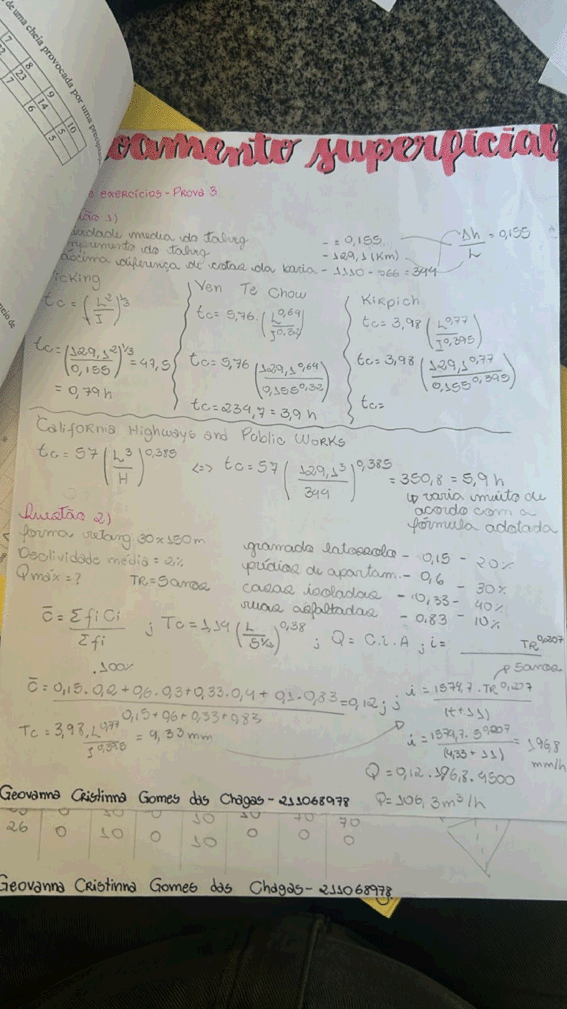 de uma cheia provocada por uma
7 8 9 10
23 14 15
7 6 5
oamento superficial
exercícios - Prova 3
tão 1)
média do talveg - = 0,155
do talveg - 129,1 (Km)
diferença de cotas da bacia - 1110 - 766 = 344
Δh/L = 0,155
icking
tc = (L²/I)^1/3
tc = (129,1²/0,155)^1/3 = 47,5
= 0,79 h
Ven Te Chow
tc = 5,76 . (L^0,64/I^0,32)
tc = 5,76 (129,1^0,64/0,155^0,32)
tc = 234,7 = 3,9 h
Kirpich
tc = 3,98 (L^0,77/I^0,385)
tc = 3,98 (129,1^0,77/0,155^0,385)
tc =
California Highways and Public Works
tc = 57 (L³/H)^0,385 <=> tc = 57 (129,1³/344)^0,385 = 350,8 = 5,9 h
↳ varia muito de
acordo com a
fórmula adotada
Questão 2)
forma retang 30 x 150 m
Declividade média = 2%
Qmáx = ? TR = 5 anos
gramado latossolo - 0,15 - 20%
prédios de apartam. - 0,6 - 30%
casas isoladas - 0,33 - 40%
ruas asfaltadas - 0,83 - 10%
C̄ = Σ fi Ci/Σ fi ; Tc = 1,14 (L/S^½)^0,38 ; Q = C.i.A ; i = TR^0,207
.100% 5 anos
C̄ = 0,15 . 0,2 + 0,6 . 0,3 + 0,33 . 0,4 + 0,1 . 0,83/0,15 + 0,6 + 0,33 + 0,83 = 0,12 ;
i = 1574,7 . TR^0,207/(t + 11)
Tc = 3,98 . L^0,77/I^0,385 = 4,33 min
i = 1574,7 . 5^0,207/(4,33 + 11) = 196,8 mm/h
Q = 0,12 . 196,8 . 4500
Q = 106,3 m³/h
Geovanna Cristinna Gomes das Chagas - 211068978
26 0 10 0 10 0 0 0
Geovanna Cristinna Gomes das Chagas - 211068978